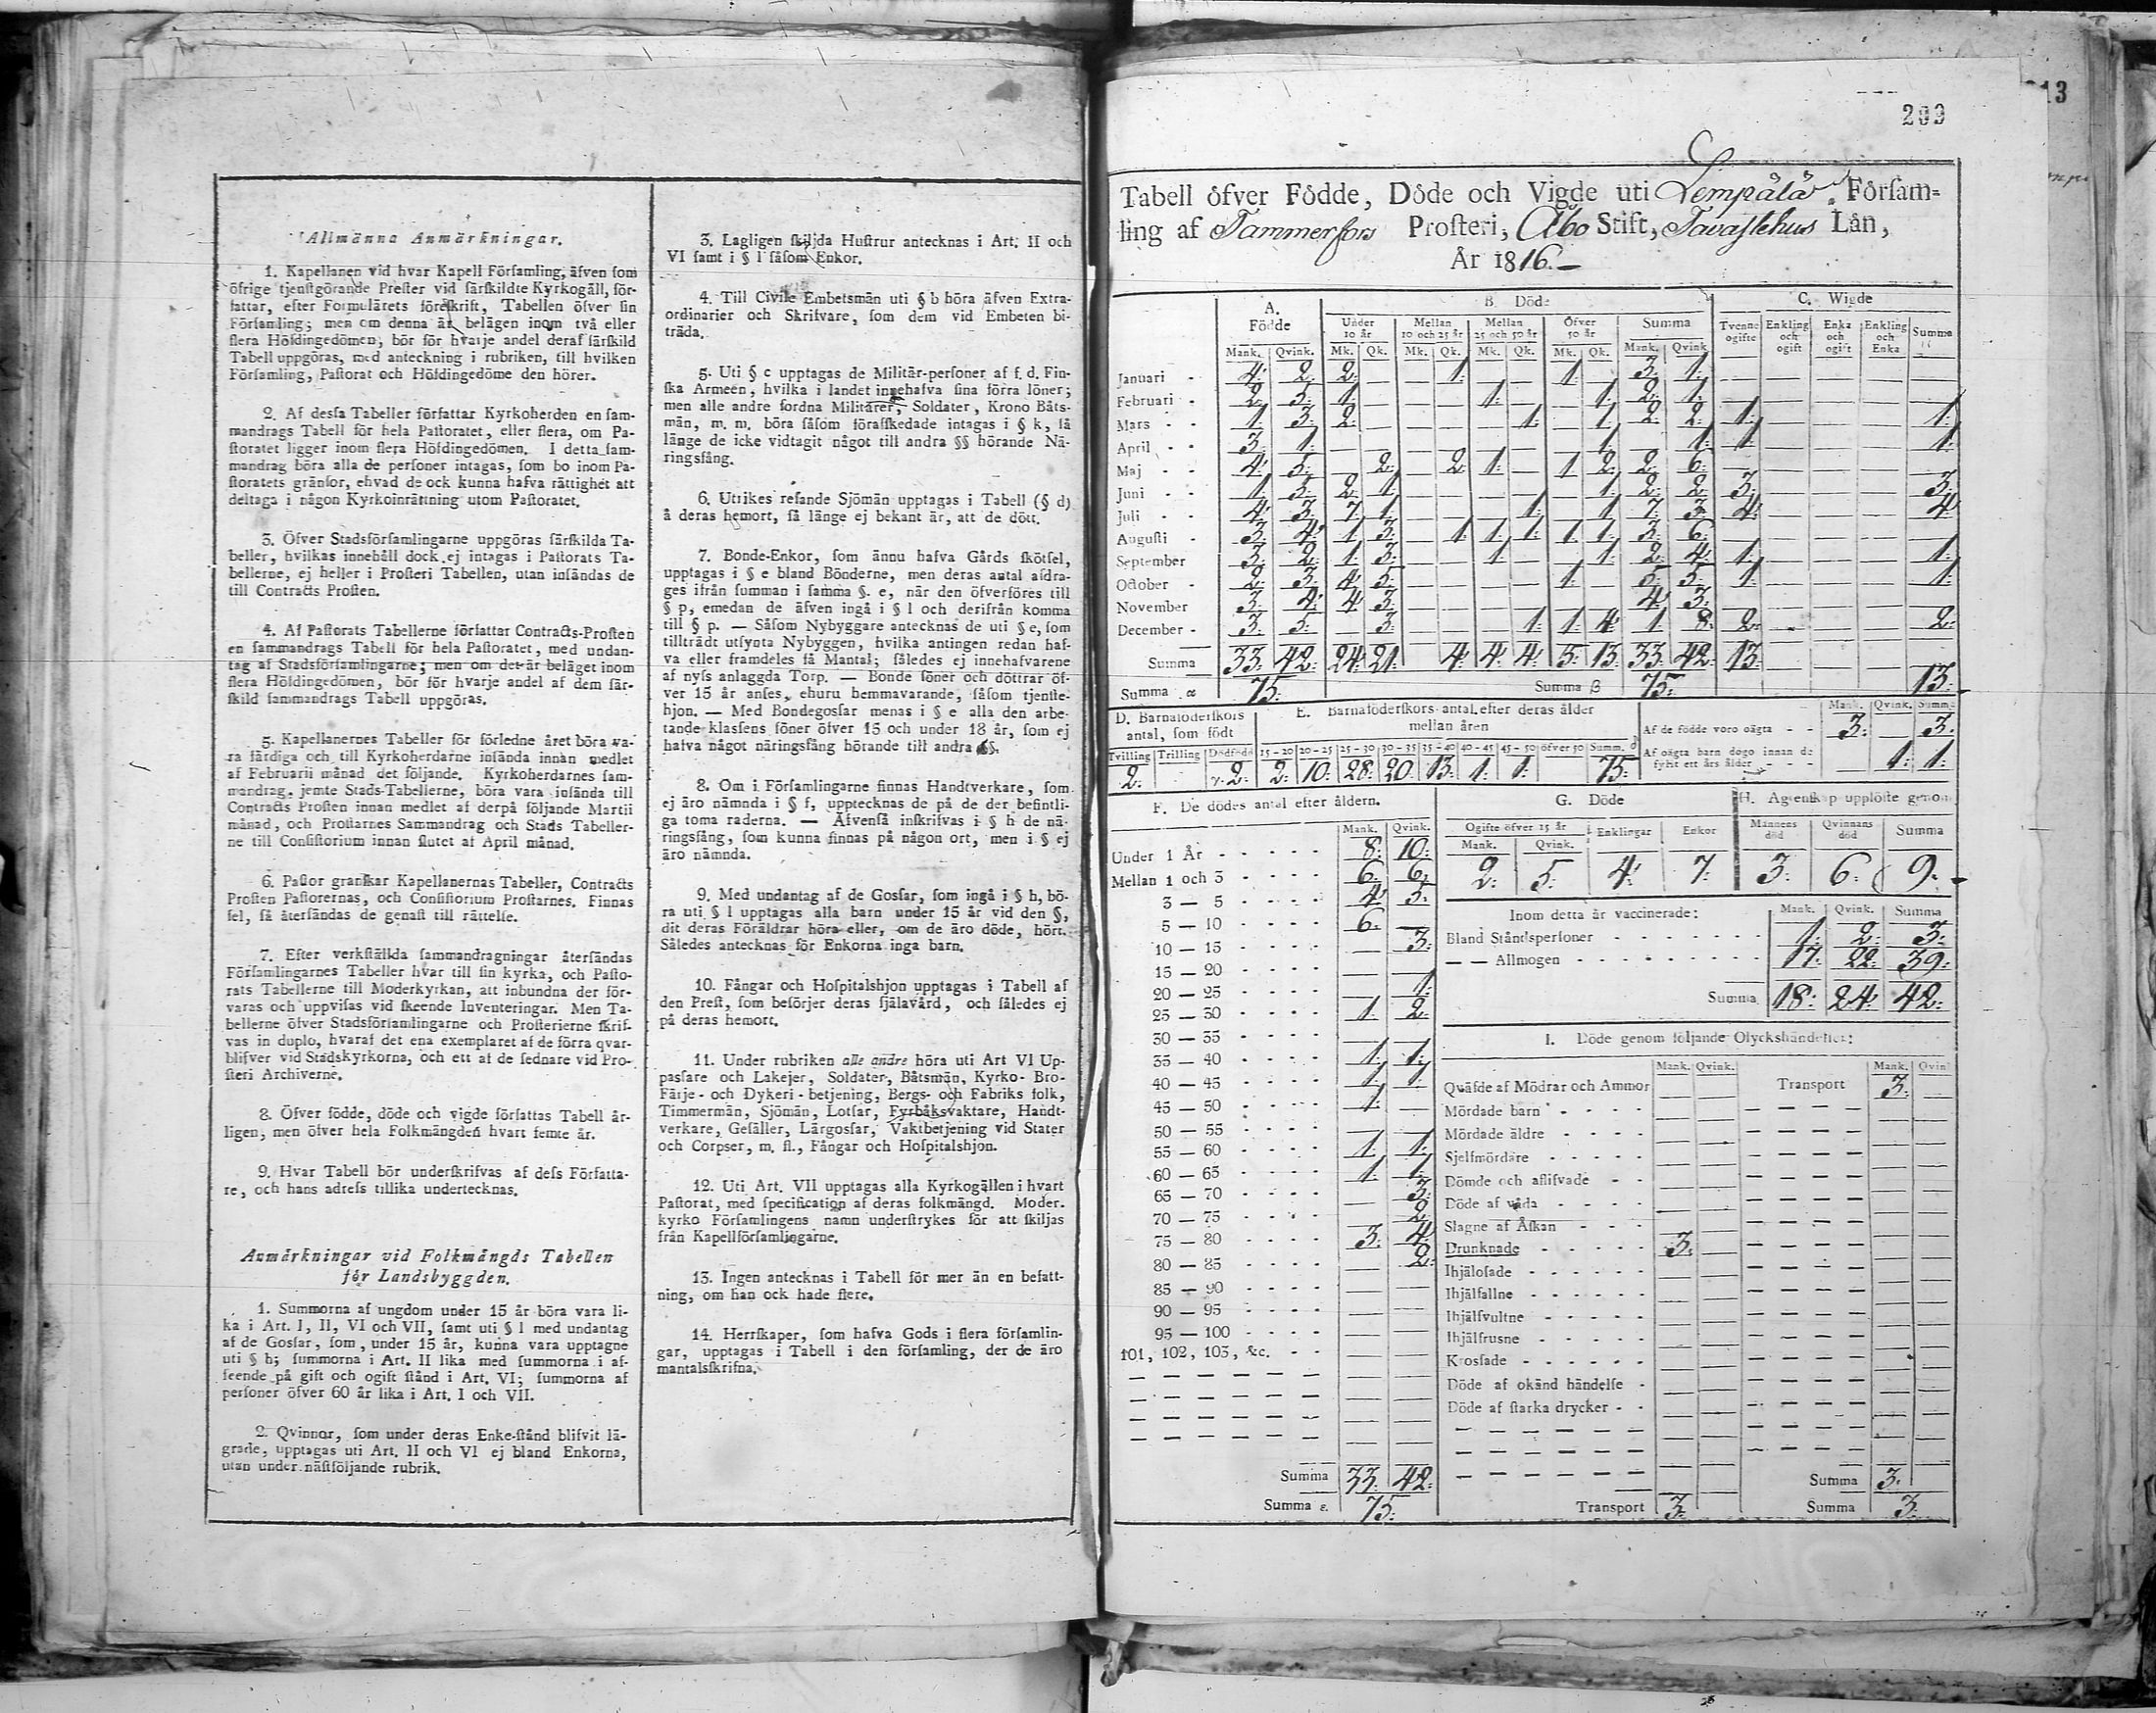 Allmänna Anmärkningar.
1. Kapellanen vid hvar Kapell Församling, äfven som
öfrige tjenstgörande Prester vid särskildte Kyrkogäll, för-
fattar, efter Formulärets föreskrift, Tabellen öfver sin
Församling; men om denna är belägen inom två eller
flera Höfdingedömen, bör för hvarje andel deraf särskild
Tabell uppgöras, med anteckning i rubriken, till hvilken
Församling, Pastorat och Höfdingedöme den hörer.
2. Af dessa Tabeller författar Kyrkoherden en sam-
mandrags Tabell för hela Pastoratet, eller flera, om Pa-
storatet ligger inom flera Höfdingedömen. I detta sam-
mandrag böra alla de personer intagas, som bo inom Pa-
storatets gränsor, ehvad de ock kunna hafva rättighet att
deltaga i någon Kyrkoinrättning utom Pastoratet.
3. Öfver Stadsförsamlingarne uppgöras särskilda Ta-
beller, hvilkas innehåll dock ej intagas i Pastorats Ta-
bellerne, ej heller i Prosteri Tabellen, utan insändas de
till Contracts Prosten.
4. Af Pastorats Tabellerne författar Contracts-Prosten
en sammandrags Tabell för hela Pastoratet, med undan-
tag af Stadsförsamlingarne; men om det är beläget inom
flera Höfdingedömen, bör för hvarje andel af dem sär-
skild sammandrags Tabell uppgöras.
5. Kapellanernes Tabeller för förledne året böra va-
ra färdiga och till Kyrkoherdarne insända innan medlet
af Februarii månad det följande. Kyrkoherdarnes sam-
mandrag, jemte Stads-Tabellerne, böra vara insända till
Contracts Prosten innan medlet af derpå följande Martii
månad, och Prostarnes Sammandrag och Stads Tabeller-
ne till Consistorium innan slutet af April månad.
6. Pastor granskar Kapellanernas Tabeller, Contracts
Prosten Pastorernas, och Consistorium Prostarnes. Finnas
fel, så återsändas de genast till rättelse.
7. Efter verkställda sammandragningar återsändas
Församlingarnes Tabeller hvar till sin kyrka, och Pasto-
rats Tabellerne till Moderkyrkan, att inbundna der för-
varas och uppvisas vid skeende Inventeringar. Men Ta-
bellerne öfver Stadsförsamlingarne och Prosterierne skrif-
vas in duplo, hvaraf det ena exemplaret af de förra qvar-
blifver vid Stadskyrkorna, och ett af de sednare vid Pro-
steri Archiverne.
8. Öfver födde, döde och vigde författas Tabell år-
ligen, men öfver hela Folkmängden hvart femte år.
9. Hvar Tabell bör underskrifvas af dess Författa-
re, och hans adress tillika undertecknas.
Anmärkningar vid Folkmängds Tabellen
för Landsbyggden.
1. Summorna af ungdom under 15 år böra vara li-
ka i Art. I, II, VI och VII, samt uti § l med undantag
af de Gossar, som, under 15 år, kunna vara upptagne
uti § h; summorna i Art. II lika med summorna i af-
seende på gift och ogift stånd i Art. VI; summorna af
personer öfver 60 år lika i Art. I och VII.
2. Qvinnor, som under deras Enke-stånd blifvit lä-
grade, upptagas uti Art. II och VI ej bland Enkorna,
utan under nästföljande rubrik.
3. Lagligen skiljda Hustrur antecknas i Art. II och
VI samt i § l såsom Enkor.
4. Till Civile Embetsmän uti § b höra äfven Extra-
ordinarier och Skrifvare, som dem vid Embeten bi-
träda.
5. Uti § c upptagas de Militär-personer af f. d. Fin-
ska Armeen, hvilka i landet innehafva sina förra löner;
men alle andre fordna Militärer, Soldater, Krono Båts-
män, m. m. böra såsom förafskedade intagas i § k, så
länge de icke vidtagit något till andra §§ hörande Nä-
ringsfång.
6. Utrikes resande Sjömän upptagas i Tabell (§ d)
å deras hemort, så länge ej bekant är, att de dött.
7. Bonde-Enkor, som ännu hafva Gårds skötsel,
upptagas i § e bland Bönderne, men deras antal afdra-
ges ifrån summan i samma §. e, när den öfverföres till
§ p, emedan de äfven ingå i § l och derifrån komma
till § p. — Såsom Nybyggare antecknas de uti § e, som
tillträdt utsynta Nybyggen, hvilka antingen redan haf-
va eller framdeles få Mantal; således ej innehafvarene
af nyss anlaggda Torp. — Bonde söner och döttrar öf-
ver 15 år anses, ehuru hemmavarande, såsom tjenste-
hjon. — Med Bondegossar menas i § e alla den arbe-
tande klassens söner öfver 15 och under 18 år, som ej
hafva något näringsfång hörande till andra §§.
8. Om i Församlingarne finnas Handtverkare, som
ej äro nämnda i § f, upptecknas de på de der befintli-
ga toma raderna. — Äfvenså inskrifvas i § h de nä-
ringsfång, som kunna finnas på någon ort, men i § ej
äro nämnda.
9. Med undantag af de Gossar, som ingå i § h, bö-
ra uti § l upptagas alla barn under 15 år vid den §,
dit deras Föräldrar höra eller, om de äro döde, hört.
Således antecknas för Enkorna inga barn.
10. Fångar och Hospitalshjon upptagas i Tabell af
den Prest, som besörjer deras själavård, och således ej
på deras hemort.
11. Under rubriken alle andre höra uti Art VI Up-
passare och Lakejer, Soldater, Båtsmän, Kyrko- Bro-
Färje- och Dykeri-betjening, Bergs- och Fabriks folk,
Timmermän, Sjömän, Lotsar, Fyrbåksvaktare, Handt-
verkare, Gesäller, Lärgossar, Vaktbetjening vid Stater
och Corpser, m. fl., Fångar och Hospitalshjon.
12. Uti Art. VII upptagas alla Kyrkogällen i hvart
Pastorat, med specification af deras folkmängd. Moder-
kyrko Församlingens namn understrykes för att skiljas
från Kapellförsamlingarne.
13. Ingen antecknas i Tabell för mer än en befatt-
ning, om han ock hade flere.
14. Herrskaper, som hafva Gods i flera församlin-
gar, upptagas i Tabell i den församling, der de äro
mantalsskrifna.
13
299
Tabell öfver Födde, Döde och Vigde uti Lempälä Försam-
ling af Tammerfors Prosteri, Åbo Stift, Tavastehus Län,
År 1816.
A. Födde B. Döde C. Wigde
Under 10 år Mellan 10 och 25 år Mellan 25 och 50 år Öfver 50 år Summa Tvenne ogifte Enkling och ogift Enka och ogift Enkling och Enka Summa
Mank. Qvink. Mk. Qk. Mk. Qk. Mk. Qk. Mk. Qk. Mank. Qvink
Januari - 4. 2. 2. — — 1. — — 1. — 3. 1. — — — — —
Februari - 2. 5. 1. — — — 1. — — 1. 2. 1. — — — — —
Mars - - 1. 3. 2. — — — — 1. — 1. 2. 2. 1. — — — 1.
April - - 3. 1. — — — — — — — 1. — 1. 1. — — — 1.
Maj - - 4. 5. — 2. — 2. 1. — 1. 2. 2. 6. — — — — —
Juni - - 1. 5. 2. 1. — — — — — 1. 2. 2. 3. — — — 3.
Juli - - 4. 3. 7. 1. — — — 1. — 1. 7. 3. 4. — — — 4.
Augusti - 3. 4. 1. 3. — 1. 1. 1. 1. 1. 3. 6. — — — — —
September 3. 2. 1. 3. — — 1. — — 1. 2. 4. 1. — — — 1.
October - 2. 3. 4. 5. — — — — 1. — 5. 5. 1. — — — 1.
November 3. 4. 4. 3. — — — — — — 4. 3. — — — — —
December - 3. 5. — 3. — — — 1. 1. 4. 1. 8. 2. — — — 2.
Summa 33. 42. 24. 21. 4. 4. 4. 5. 13. 33. 42. 13.
Summa α 75. Summa β 75. 13.
D. Barnaföderskors antal, som födt
Tvilling Trilling Dödfödd
2. 2.
E. Barnaföderskors antal efter deras ålder mellan åren
15-20 20-25 25-30 30-35 35-40 40-45 45-50 öfver 50 Summ.
2. 10. 28. 20. 13. 1. 1. 75.
Mank. Qvink. Summa
Af de födde voro oägta - - 3. — 3.
Af oägta barn dogo innan de
fyllt ett års ålder - - - — 1. 1.
F. De dödes antal efter åldern.
Mank. Qvink.
Under 1 År - - - - - 8. 10.
Mellan 1 och 3 - - - - 6. 6.
3 — 5 - - - - 4. 5.
5 — 10 - - - - 6. —
10 — 15 - - - - — 3.
15 — 20 - - - - — —
20 — 25 - - - - — 1.
25 — 30 - - - - 1. 2.
30 — 35 - - - - — —
35 — 40 - - - - 1. 1.
40 — 45 - - - - 1. 1.
45 — 50 - - - - 1. —
50 — 55 - - - - — —
55 — 60 - - - - 1. 1.
60 — 65 - - - - 1. 1.
65 — 70 - - - - — 3.
70 — 75 - - - - — 2.
75 — 80 - - - - 3. 4.
80 — 85 - - - - — 2.
85 — 90 - - - - — —
90 — 95 - - - - — —
95 — 100 - - - - — —
101, 102, 103, &c. - - — —
Summa 33. 42.
Summa ε. 75.
G. Döde
Ogifte öfver 15 år Enklingar Enkor
Mank. Qvink.
2. 5. 4. 7.
H. Agtenskap upplöste genom
Mannens död Qvinnans död Summa
3. 6. 9.
Inom detta år vaccinerade: Mank. Qvink. Summa
Bland Ståndspersoner - - - 1. 2. 3.
— — Allmogen - - - 17. 22. 39.
Summa 18. 24. 42.
I. Döde genom följande Olyckshändelser:
Mank. Qvink. Mank. Qvin
Qväfde af Mödrar och Ammor — — Transport 3.
Mördade barn - - - -
Mördade äldre - - - -
Sjelfmördare - - - -
Dömde och aflifvade - -
Döde af våda - - - -
Slagne af Åskan - - -
Drunknade - - - - - 3.
Ihjälosade - - - - -
Ihjälfallne - - - - -
Ihjälfvultne - - - - -
Ihjälfrusne - - - - -
Krossade - - - - - -
Döde af okänd händelse -
Döde af starka drycker - -
Summa 3.
Transport 3. Summa 3.